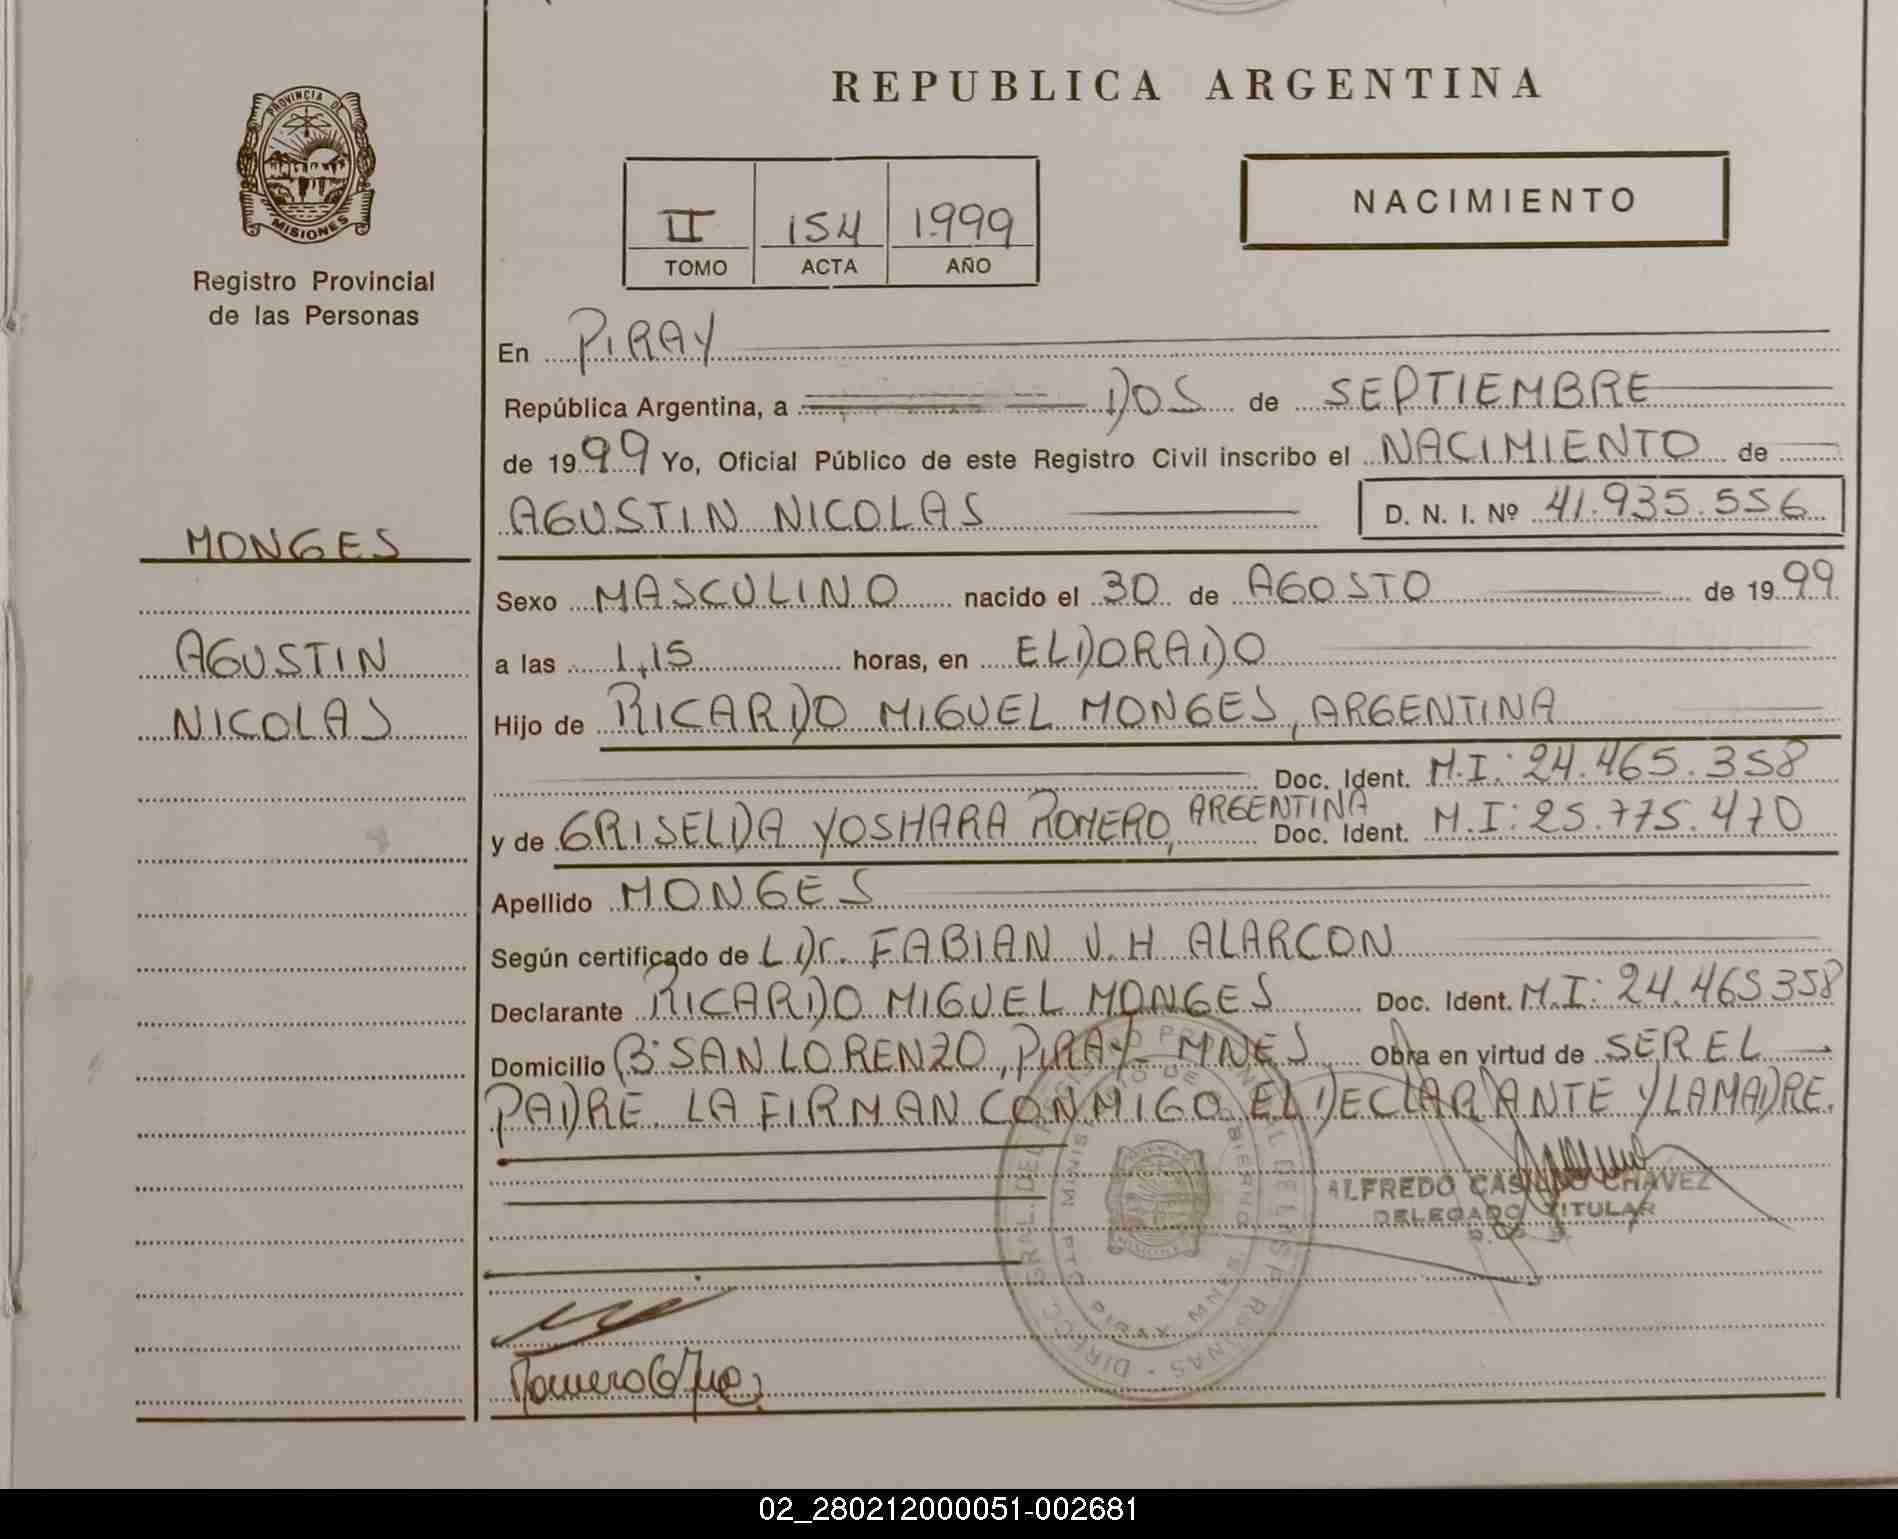 REPUBLICA ARGENTINA
PROVINCIA DE
MISIONES
Registro Provincial
de las Personas
II 154 1.999
TOMO ACTA AÑO
NACIMIENTO
En PIRAY
República Argentina, a DOS de SEPTIEMBRE
de 1999 Yo, Oficial Público de este Registro Civil inscribo el NACIMIENTO de
AGUSTIN NICOLAS D. N. I. Nº 41.935.556
MONGES
AGUSTIN
NICOLAS
Sexo MASCULINO nacido el 30 de AGOSTO de 1999
a las 1,15 horas, en ELDORADO
Hijo de RICARDO MIGUEL MONGES, ARGENTINA
Doc. Ident. M.I: 24.465.358
y de GRISELDA YOSHARA ROMERO, ARGENTINA Doc. Ident. M.I: 25.775.470
Apellido MONGES
Según certificado de L Dr. FABIAN V. H ALARCON
Declarante RICARDO MIGUEL MONGES Doc. Ident. M.I: 24.465358
Domicilio Bº SAN LORENZO, PIRAY MNES Obra en virtud de SER EL
PADRE. LA FIRMAN CONMIGO EL DECLARANTE Y LA MADRE.
ALFREDO CASILDO CHAVEZ
DELEGADO TITULAR
Romero G
02_280212000051-002681